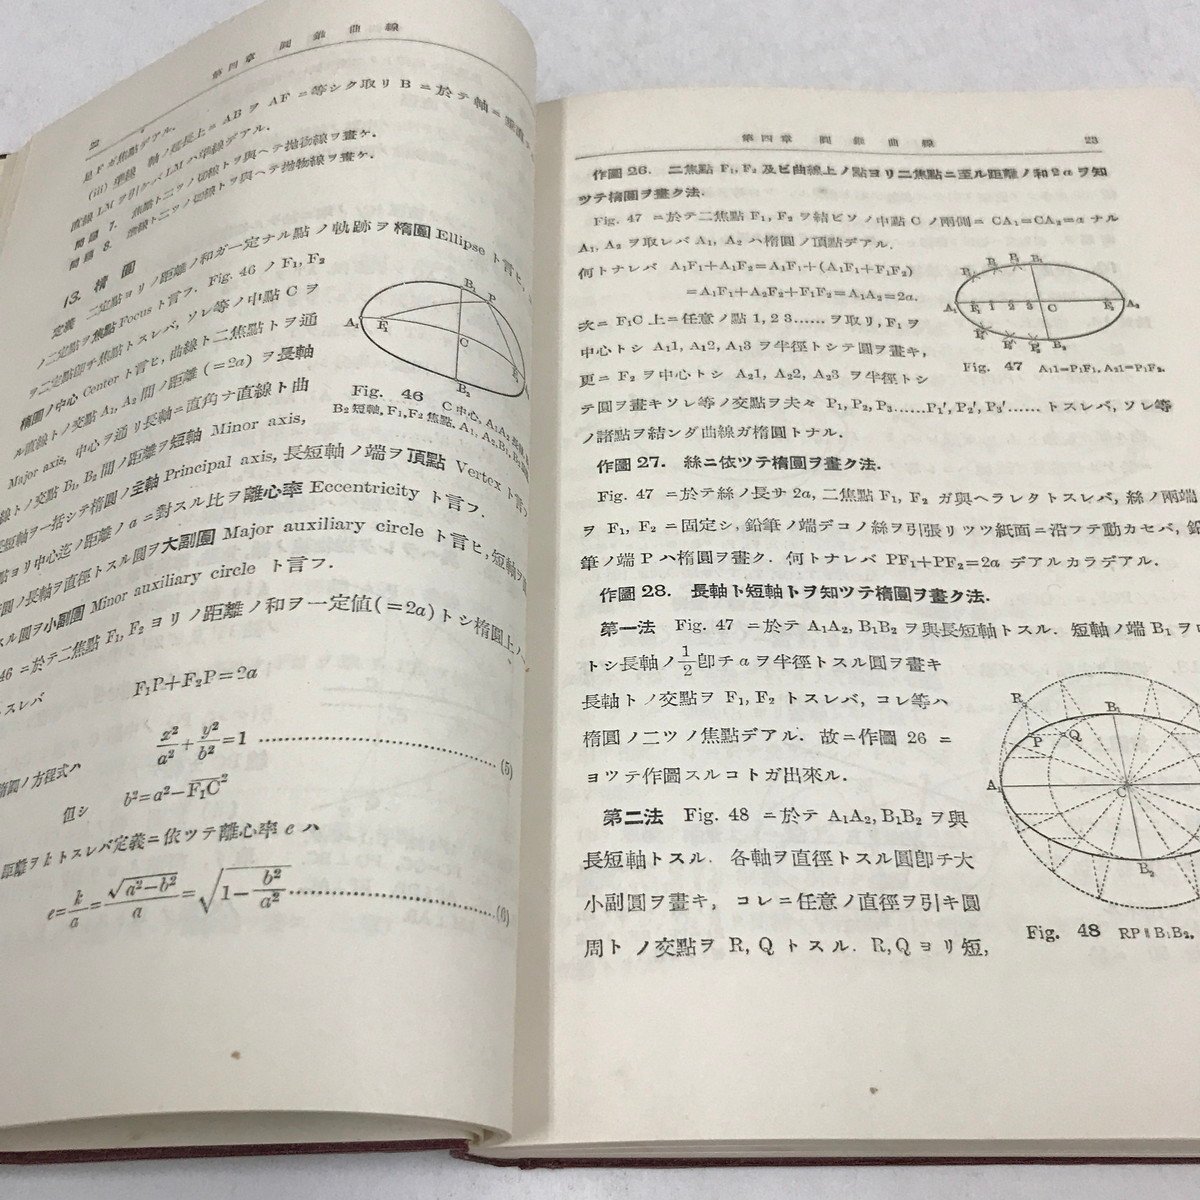 第四章 圓錐曲線
22
足Fガ焦點デアル.
(iii) 準線 軸ノ延長上ニABヲAFニ等シク取リBニ於テ軸ニ垂
直線LMヲ引ケバLMハ準線デアル.
問題 7. 焦點ト二ツノ切線トヲ與ヘテ抛物線ヲ畫ケ.
問題 8. 準線ト二ツノ切線トヲ與ヘテ抛物線ヲ畫ケ.
13. 橢圓
定義 二定點ヨリノ距離ノ和ガ一定ナル點ノ軌跡ヲ橢圓 Ellipse ト言ヒ,
ノ二定點ヲ焦點 Focus ト言フ. Fig. 46 ノ F₁, F₂
ヲ二定點卽チ焦點トスレバ, ソレ等ノ中點 C ヲ
橢圓ノ中心 Center ト言ヒ, 曲線ト二焦點トヲ通
ル直線トノ交點 A₁, A₂ 間ノ距離 (=2a) ヲ長軸
Major axis, 中心ヲ通リ長軸ニ直角ナ直線ト曲
線トノ交點 B₁, B₂ 間ノ距離ヲ短軸 Minor axis,
長短軸ヲ一括シテ橢圓ノ主軸 Principal axis, 長短軸ノ端ヲ頂點 Vertex ト言
點ヨリ中心迄ノ距離ノ a ニ對スル比ヲ離心率 Eccentricity ト言フ.
圓ノ長軸ヲ直徑トスル圓ヲ大副圓 Major auxiliary circle ト言ヒ, 短軸ヲ
スル圓ヲ小副圓 Minor auxiliary circle ト言フ.
46 ニ於テ二焦點 F₁, F₂ ヨリノ距離ノ和ヲ一定値(=2a)トシ橢圓上ノ
トスレバ
F₁P+F₂P=2a
橢圓ノ方程式ハ
x²/a²+y²/b²=1 ……(5)
但シ b²=a²−F₁C²
距離ヲ k トスレバ定義ニ依ツテ離心率 e ハ
e=k/a=√(a²−b²)/a=√(1−b²/a²) ……(6)
B₁ P
A₁ F₁
C
F₂
B₂
Fig. 46 C 中心, A₁A₂
B₂ 短軸, F₁, F₂ 焦點, A₁, A₂, B₁, B₂
第四章 圓錐曲線 23
作圖26. 二焦點 F₁, F₂ 及ビ曲線上ノ點ヨリ二焦點ニ至ル距離ノ和2aヲ知
ツテ橢圓ヲ畫ク法.
Fig. 47 ニ於テ二焦點 F₁, F₂ ヲ結ビソノ中點 C ノ兩側ニ CA₁=CA₂=a ナル
A₁, A₂ ヲ取レバ A₁, A₂ ハ橢圓ノ頂點デアル.
何トナレバ A₁F₁+A₁F₂=A₁F₁+(A₁F₁+F₁F₂)
=A₁F₁+A₂F₂+F₁F₂=A₁A₂=2a.
次ニ F₁C 上ニ任意ノ點 1, 2 3……ヲ取リ, F₁ ヲ
中心トシ A₁1, A₁2, A₁3 ヲ半徑トシテ圓ヲ畫キ,
更ニ F₂ ヲ中心トシ A₂1, A₂2, A₂3 ヲ半徑トシ
テ圓ヲ畫キソレ等ノ交點ヲ夫々 P₁, P₂, P₃……P₁′, P₂′, P₃′…… トスレバ, ソレ等
ノ諸點ヲ結ンダ曲線ガ橢圓トナル.
A₁ F₁ 1 2 3 C F₂ A₂
B₁
B₂
Fig. 47 A₁1=P₁F₁, A₂1=P₁F₂.
作圖27. 絲ニ依ツテ橢圓ヲ畫ク法.
Fig. 47 ニ於テ絲ノ長サ 2a, 二焦點 F₁, F₂ ガ與ヘラレタトスレバ, 絲ノ兩端
ヲ F₁, F₂ ニ固定シ, 鉛筆ノ端デコノ絲ヲ引張リツツ紙面ニ沿フテ動カセバ, 鉛
筆ノ端 P ハ橢圓ヲ畫ク. 何トナレバ PF₁+PF₂=2a デアルカラデアル.
作圖28. 長軸ト短軸トヲ知ツテ橢圓ヲ畫ク法.
第一法 Fig. 47 ニ於テ A₁A₂, B₁B₂ ヲ與長短軸トスル. 短軸ノ端 B₁ ヲ中
トシ長軸ノ 1/2 卽チ a ヲ半徑トスル圓ヲ畫キ
長軸トノ交點ヲ F₁, F₂ トスレバ, コレ等ハ
橢圓ノ二ツノ焦點デアル. 故ニ作圖 26 ニ
ヨツテ作圖スルコトガ出來ル.
第二法 Fig. 48 ニ於テ A₁A₂, B₁B₂ ヲ與
長短軸トスル. 各軸ヲ直徑トスル圓卽チ大
小副圓ヲ畫キ, コレニ任意ノ直徑ヲ引キ圓
周トノ交點ヲ R, Q トスル. R, Q ヨリ短,
R B₁
P Q
A₁ C
B₂
Fig. 48 RP∥B₁B₂.